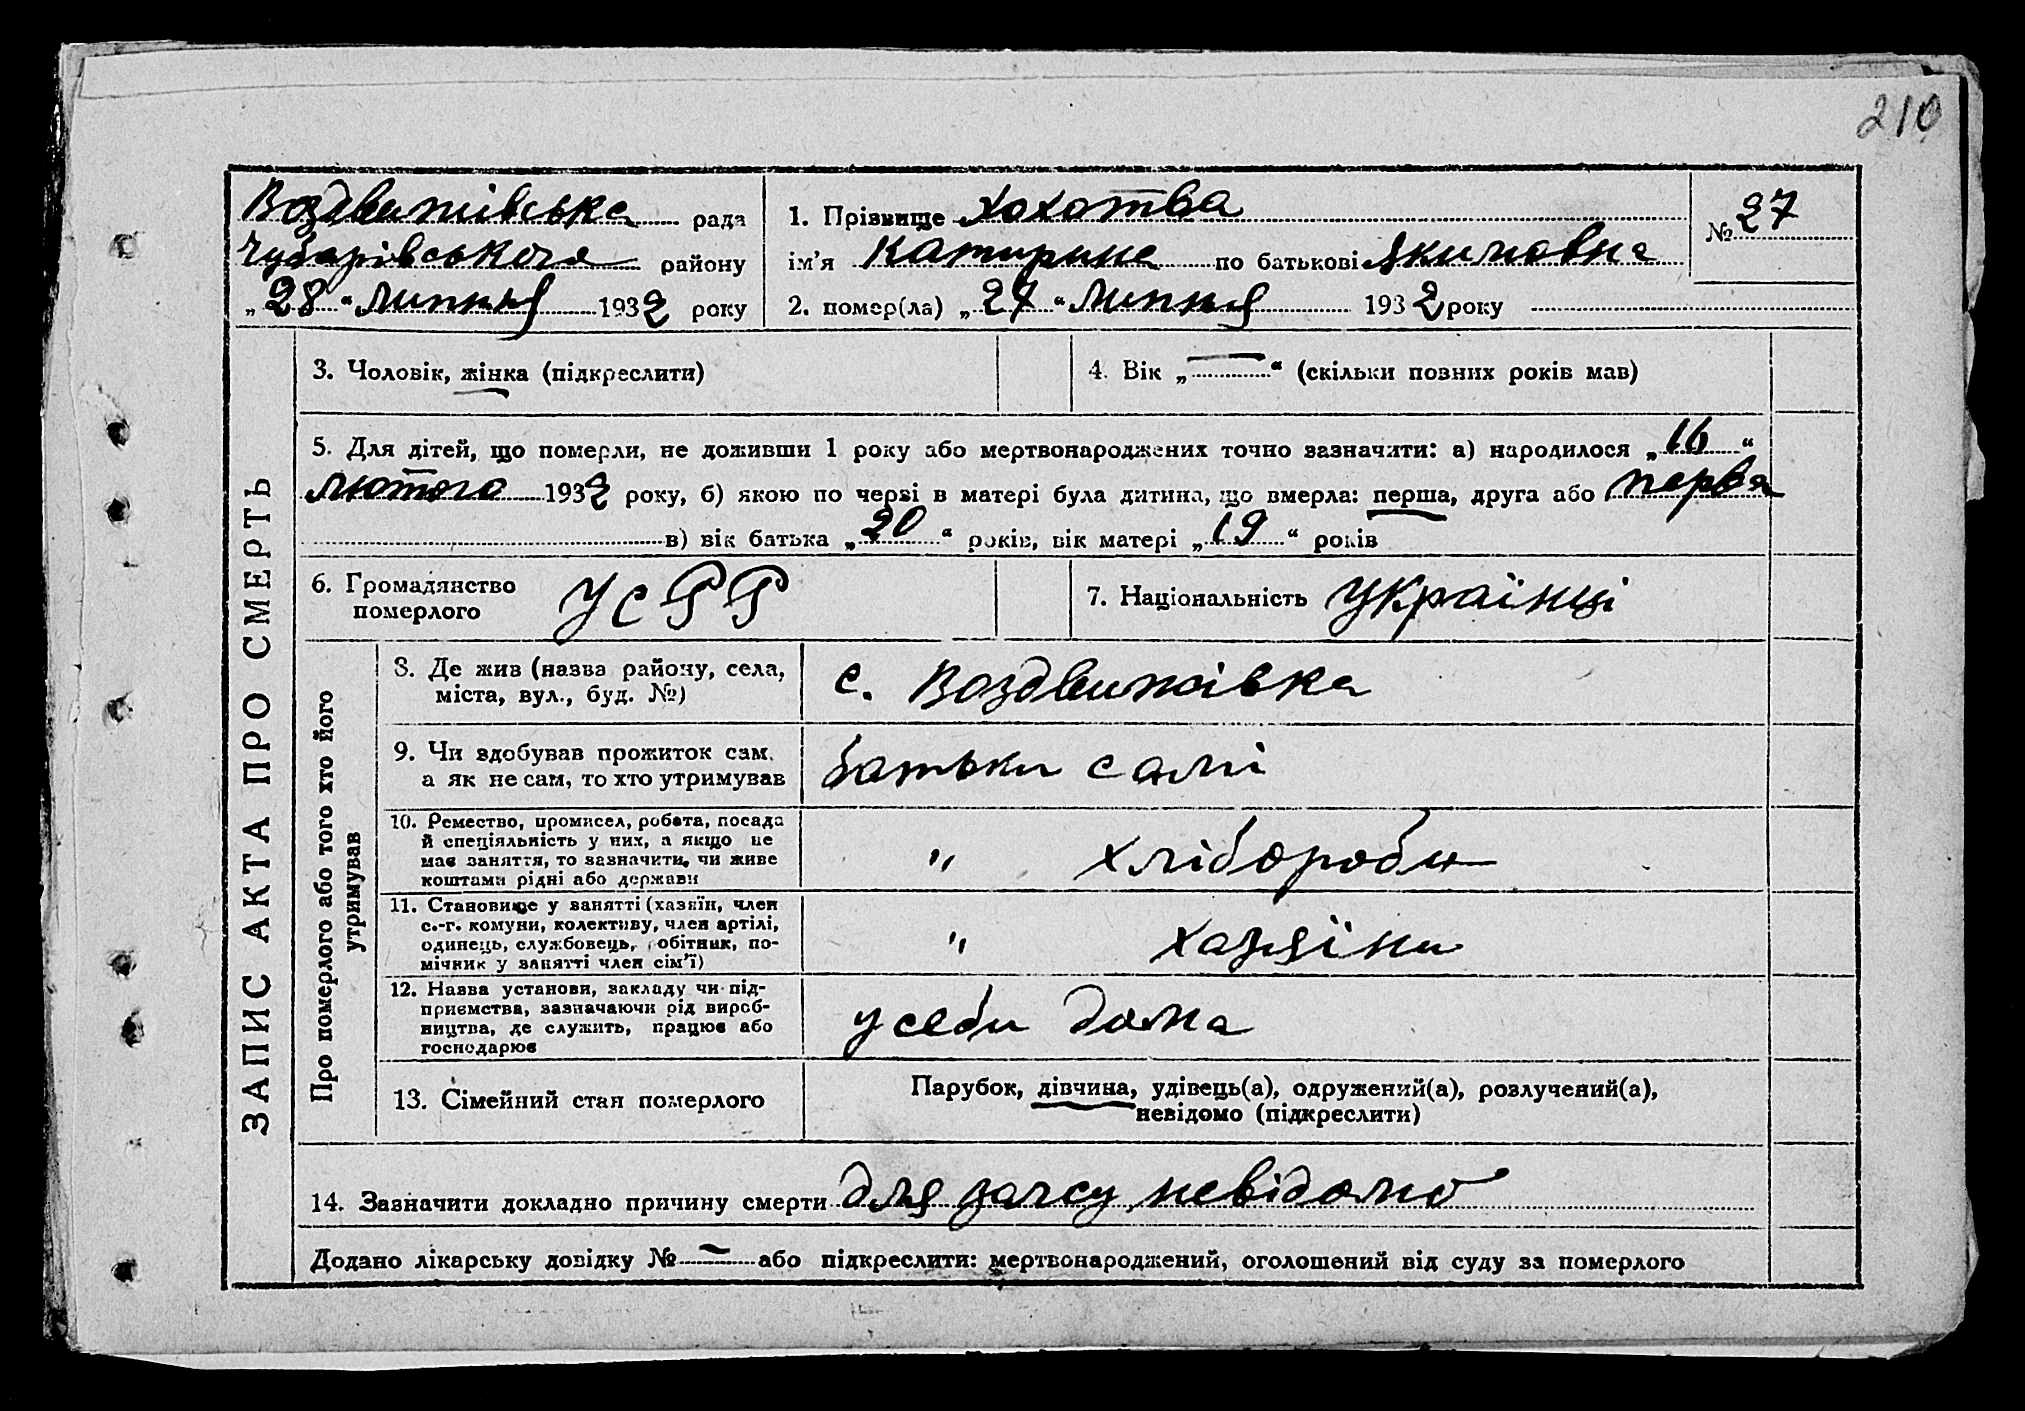 210
Воздвижівська рада
Чубарівського району
„28“ липня 1932 року
1. Прізвище Хохотва
ім'я Катирина по батькові Якимовна
2. помер(ла) „27“ липня 1932 року
№ 27
ЗАПИС АКТА ПРО СМЕРТЬ
3. Чоловік, жінка (підкреслити)
4. Вік „—“ (скільки повних років мав)
5. Для дітей, що померли, не доживши 1 року або мертвонароджених точно зазначити: а) народилося „16“
лютого 1932 року, б) якою по черзі в матері була дитина, що вмерла: перша, друга або перва
в) вік батька „20“ років, вік матері „19“ років
6. Громадянство
померлого УСРР
7. Національність Українці
Про померлого або того хто його
утримував
8. Де жив (назва району, села,
міста, вул., буд. №)
с. Воздвижівка
9. Чи здобував прожиток сам,
а як не сам, то хто утримував
батьки самі
10. Ремество, промисел, робота, посада
й спеціяльність у них, а якщо не
має заняття, то зазначити, чи живе
коштами рідні або держави
" хлібороби
11. Становище у занятті (хазяїн, член
с.-г. комуни, колективу, член артілі,
одинець, службовець, робітник, по-
мічник у занятті член сім'ї)
" хазяїни
12. Назва установи, закладу чи під-
приємства, зазначаючи рід вироб-
ництва, де служить, працює або
господарює
у себи дома
13. Сімейний стан померлого
Парубок, дівчина, удівець(а), одружений(а), розлучений(а),
невідомо (підкреслити)
14. Зазначити докладно причину смерти для загсу невідомо
Додано лікарську довідку № — або підкреслити: мертвонароджений, оголошений від суду за померлого